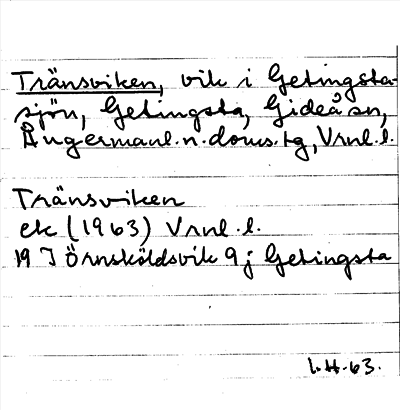 Tränsviken, vik i Getingsta-
sjön, Getingsta, Gideå sn,
Ångermanl. n. doms. tg, Vrnl. l.
Tränsviken
ek (1963) Vrnl. l.
19 J Örnsköldsvik 9 j Getingsta
L.H. 63.